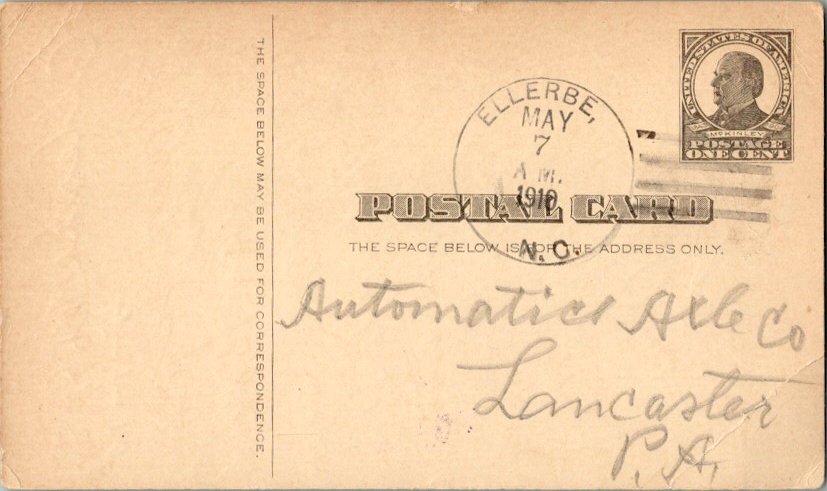 THE SPACE BELOW MAY BE USED FOR CORRESPONDENCE.
UNITED STATES OF AMERICA
McKINLEY
POSTAGE
ONE CENT
ELLERBE,
MAY
7
A M.
1910
N.C.
POSTAL CARD
THE SPACE BELOW IS FOR THE ADDRESS ONLY.
Automatick Axle Co
Lancaster
P.A.